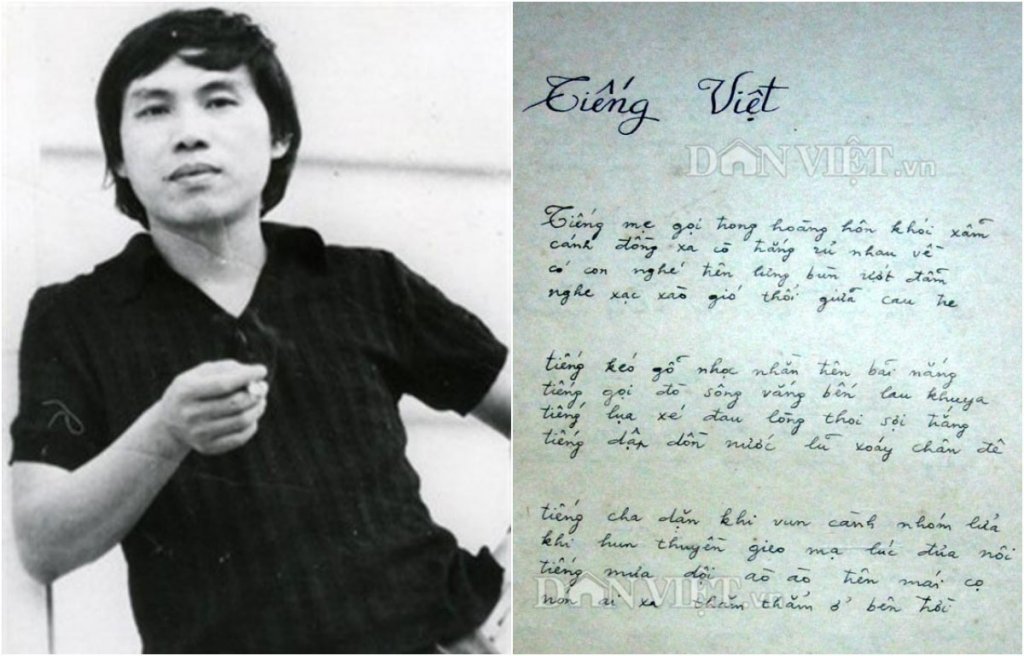 Tiếng Việt
DÂN VIỆT.vn
Tiếng mẹ gọi trong hoàng hôn khói xẫm
cánh đồng xa cò trắng rủ nhau về
có con nghé trên lưng bùn ướt đẫm
nghe xạc xào gió thổi giữa cau tre
tiếng kéo gỗ nhọc nhằn trên bãi nắng
tiếng gọi đò sông vắng bến lau khuya
tiếng lụa xé đau lòng thoi sợi trắng
tiếng dập dồn nước lũ xoáy chân đê
tiếng cha dặn khi vun cành nhóm lửa
khi hun thuyền gieo mạ lúc đưa nôi
tiếng mưa dội ào ào trên mái cọ
nón ai xa thăm thẳm ở bên trời
DÂN VIỆT.vn